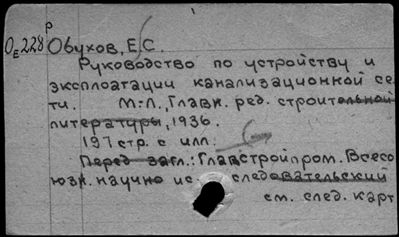 р
ОЕ228 Обухов, Е.С.
Руководство по устройству и
эксплоатации канализационной се-
ти. М.-Л., Главн. ред. строительной
литературы, 1936.
197 стр. с илл.
Перед загл.: Главстройпром. Всесо
юзн. научно ис следовательский
см. след. карт